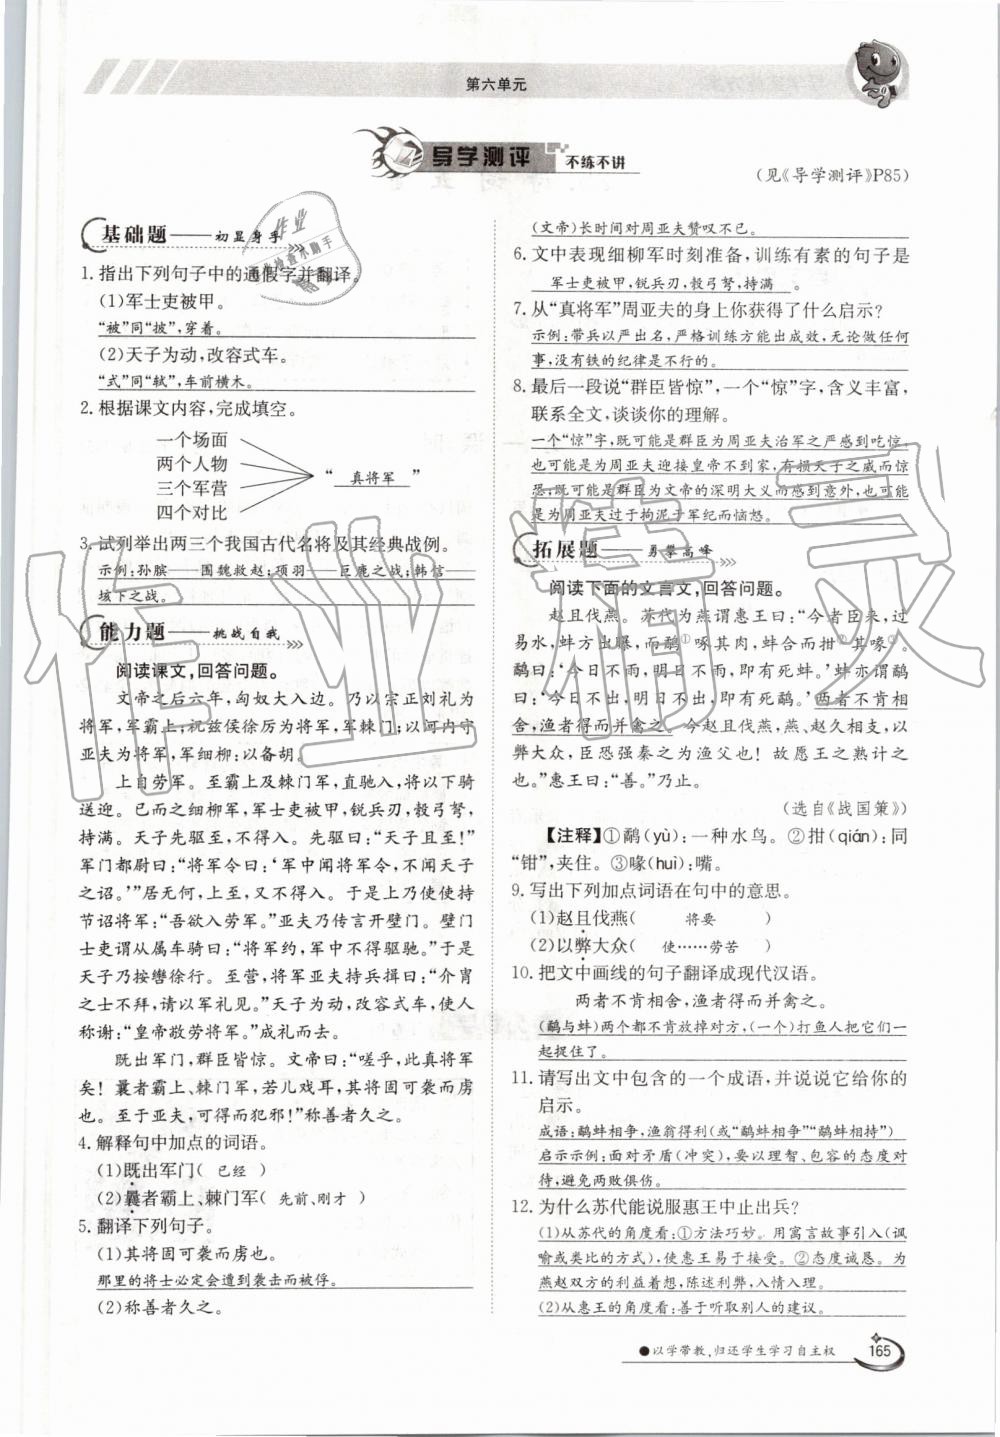 第六单元
导学测评 不练不讲
(见《导学测评》P85)
基础题——初显身手
1. 指出下列句子中的通假字并翻译。
(1)军士吏被甲。
“被”同“披”,穿着。
(2)天子为动,改容式车。
“式”同“轼”,车前横木。
2. 根据课文内容,完成填空。
一个场面
两个人物
三个军营
四个对比
“ 真将军 ”
3. 试列举出两三个我国古代名将及其经典战例。
示例:孙膑——围魏救赵;项羽——巨鹿之战;韩信——
垓下之战。
能力题——挑战自我
阅读课文,回答问题。
文帝之后六年,匈奴大入边。乃以宗正刘礼为
将军,军霸上;祝兹侯徐厉为将军,军棘门;以河内守
亚夫为将军,军细柳:以备胡。
上自劳军。至霸上及棘门军,直驰入,将以下骑
送迎。已而之细柳军,军士吏被甲,锐兵刃,彀弓弩,
持满。天子先驱至,不得入。先驱曰:“天子且至!”
军门都尉曰:“将军令曰:‘军中闻将军令,不闻天子
之诏。’”居无何,上至,又不得入。于是上乃使使持
节诏将军:“吾欲入劳军。”亚夫乃传言开壁门。壁门
士吏谓从属车骑曰:“将军约,军中不得驱驰。”于是
天子乃按辔徐行。至营,将军亚夫持兵揖曰:“介胄
之士不拜,请以军礼见。”天子为动,改容式车,使人
称谢:“皇帝敬劳将军。”成礼而去。
既出军门,群臣皆惊。文帝曰:“嗟乎,此真将军
矣!曩者霸上、棘门军,若儿戏耳,其将固可袭而虏
也。至于亚夫,可得而犯邪!”称善者久之。
4. 解释句中加点的词语。
(1)既出军门( 已经 )
(2)曩者霸上、棘门军( 先前、刚才 )
5. 翻译下列句子。
(1)其将固可袭而虏也。
那里的将士必定会遭到袭击而被俘。
(2)称善者久之。
(文帝)长时间对周亚夫赞叹不已。
6. 文中表现细柳军时刻准备,训练有素的句子是
军士吏被甲,锐兵刃,彀弓弩,持满 。
7. 从“真将军”周亚夫的身上你获得了什么启示?
示例:带兵以严出名,严格训练方能出成效,无论做任何
事,没有铁的纪律是不行的。
8. 最后一段说“群臣皆惊”,一个“惊”字,含义丰富,
联系全文,谈谈你的理解。
一个“惊”字,既可能是群臣为周亚夫治军之严感到吃惊,
也可能是为周亚夫迎接皇帝不到家,有损天子之威而惊
恐;既可能是群臣为文帝的深明大义而感到意外,也可能
是为周亚夫过于拘泥于军纪而恼怒。
拓展题——勇攀高峰
阅读下面的文言文,回答问题。
赵且伐燕。苏代为燕谓惠王曰:“今者臣来,过
易水,蚌方出曝,而鹬①啄其肉,蚌合而拑②其喙③。
鹬曰:‘今日不雨,明日不雨,即有死蚌。’蚌亦谓鹬
曰:‘今日不出,明日不出,即有死鹬。’两者不肯相
舍,渔者得而并禽之。今赵且伐燕,燕、赵久相支,以
弊大众,臣恐强秦之为渔父也!故愿王之熟计之
也。”惠王曰:“善。”乃止。
(选自《战国策》)
【注释】①鹬(yù):一种水鸟。②拑(qián):同
“钳”,夹住。③喙(huì):嘴。
9. 写出下列加点词语在句中的意思。
(1)赵且伐燕( 将要 )
(2)以弊大众( 使……劳苦 )
10. 把文中画线的句子翻译成现代汉语。
两者不肯相舍,渔者得而并禽之。
(鹬与蚌)两个都不肯放掉对方,(一个)打鱼人把它们一
起捉住了。
11. 请写出文中包含的一个成语,并说说它给你的
启示。
成语:鹬蚌相争,渔翁得利(或“鹬蚌相争”“鹬蚌相持”)
启示示例:面对矛盾(冲突),要以理智、包容的态度对
待,避免两败俱伤。
12. 为什么苏代能说服惠王中止出兵?
(1)从苏代的角度看:①方法巧妙。用寓言故事引入(讽
喻或类比的方式),使惠王易于接受。②态度诚恳。为
燕赵双方的利益着想,陈述利弊,入情入理。
(2)从惠王的角度看:善于听取别人的建议。
●以学带教,归还学生学习自主权
165